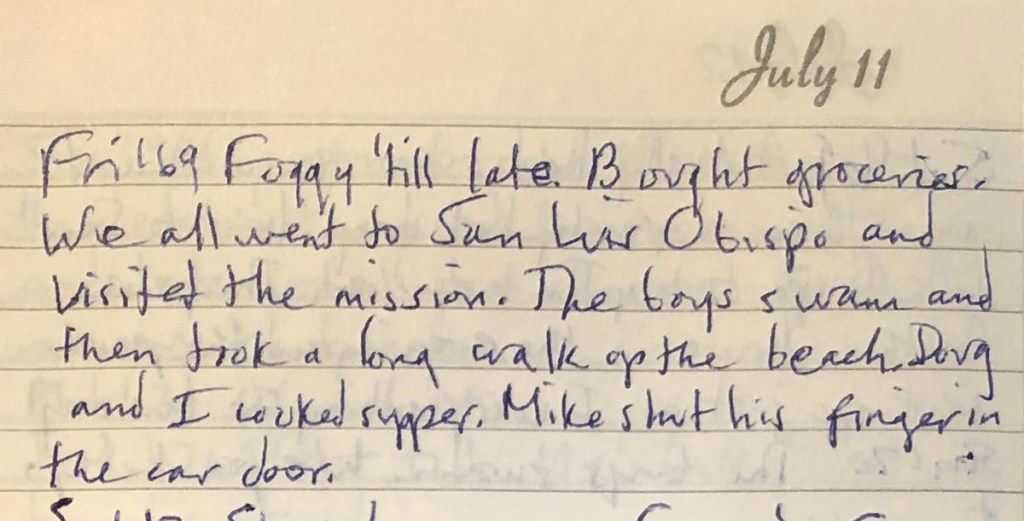 July 11
Fri '69 Foggy 'till late. Bought groceries.
We all went to San Luis Obispo and
visited the mission. The boys swam and
then took a long walk up the beach. Doug
and I cooked supper. Mike shut his finger in
the car door.